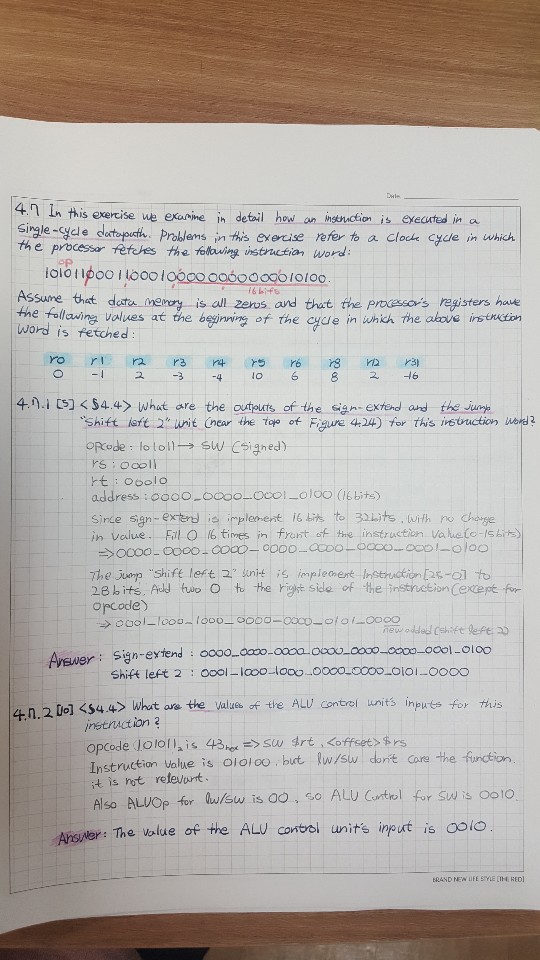 Date
4.7 In this exercise we examine in detail how an instruction is executed in a
single-cycle datapath. Problems in this exercise refer to a clock cycle in which
the processor fetches the following instruction word:
op
10101100011000100000000000010100.
16bits
Assume that data memory is all zeros and that the processor's registers have
the following values at the beginning of the cycle in which the above instruction
word is fetched:
r0 r1 r2 r3 r4 r5 r6 r8 r12 r31
0 -1 2 -3 -4 10 6 8 2 -16
4.7.1 [5] <§4.4> What are the outputs of the sign-extend and the jump
"shift left 2" unit (near the top of Figure 4.24) for this instruction word?
opcode : 101011 → SW (signed)
rs : 00011
rt : 00010
address : 0000_0000_0001_0100 (16bits)
Since sign-extend is implement 16 bits to 32bits, with no change
in value. Fill 0 16 times in front of the instruction value (0-15bits)
⇒ 0000_0000_0000_0000_0000_0000_0001_0100
The jump "shift left 2" unit is implement Instruction[25-0] to
28 bits, Add two 0 to the right side of the instruction (except for
opcode)
⇒ 0001_1000_1000_0000_0000_0101_0000
new added (shift left 2)
Answer : Sign-extend : 0000_0000_0000_0000_0000_0000_0001_0100
Shift left 2 : 0001_1000_1000_0000_0000_0101_0000
4.7.2 [10] <§4.4> What are the values of the ALU control unit's inputs for this
instruction?
opcode 101011₂ is 43hex ⇒ SW $rt, <offset>$rs
Instruction value is 010100, but lw/sw don't care the function.
it is not relevant.
Also ALUOp for lw/sw is 00, so ALU Control for SW is 0010.
Answer : The value of the ALU control unit's input is 0010.
BRAND NEW LIFE STYLE [THE RED]